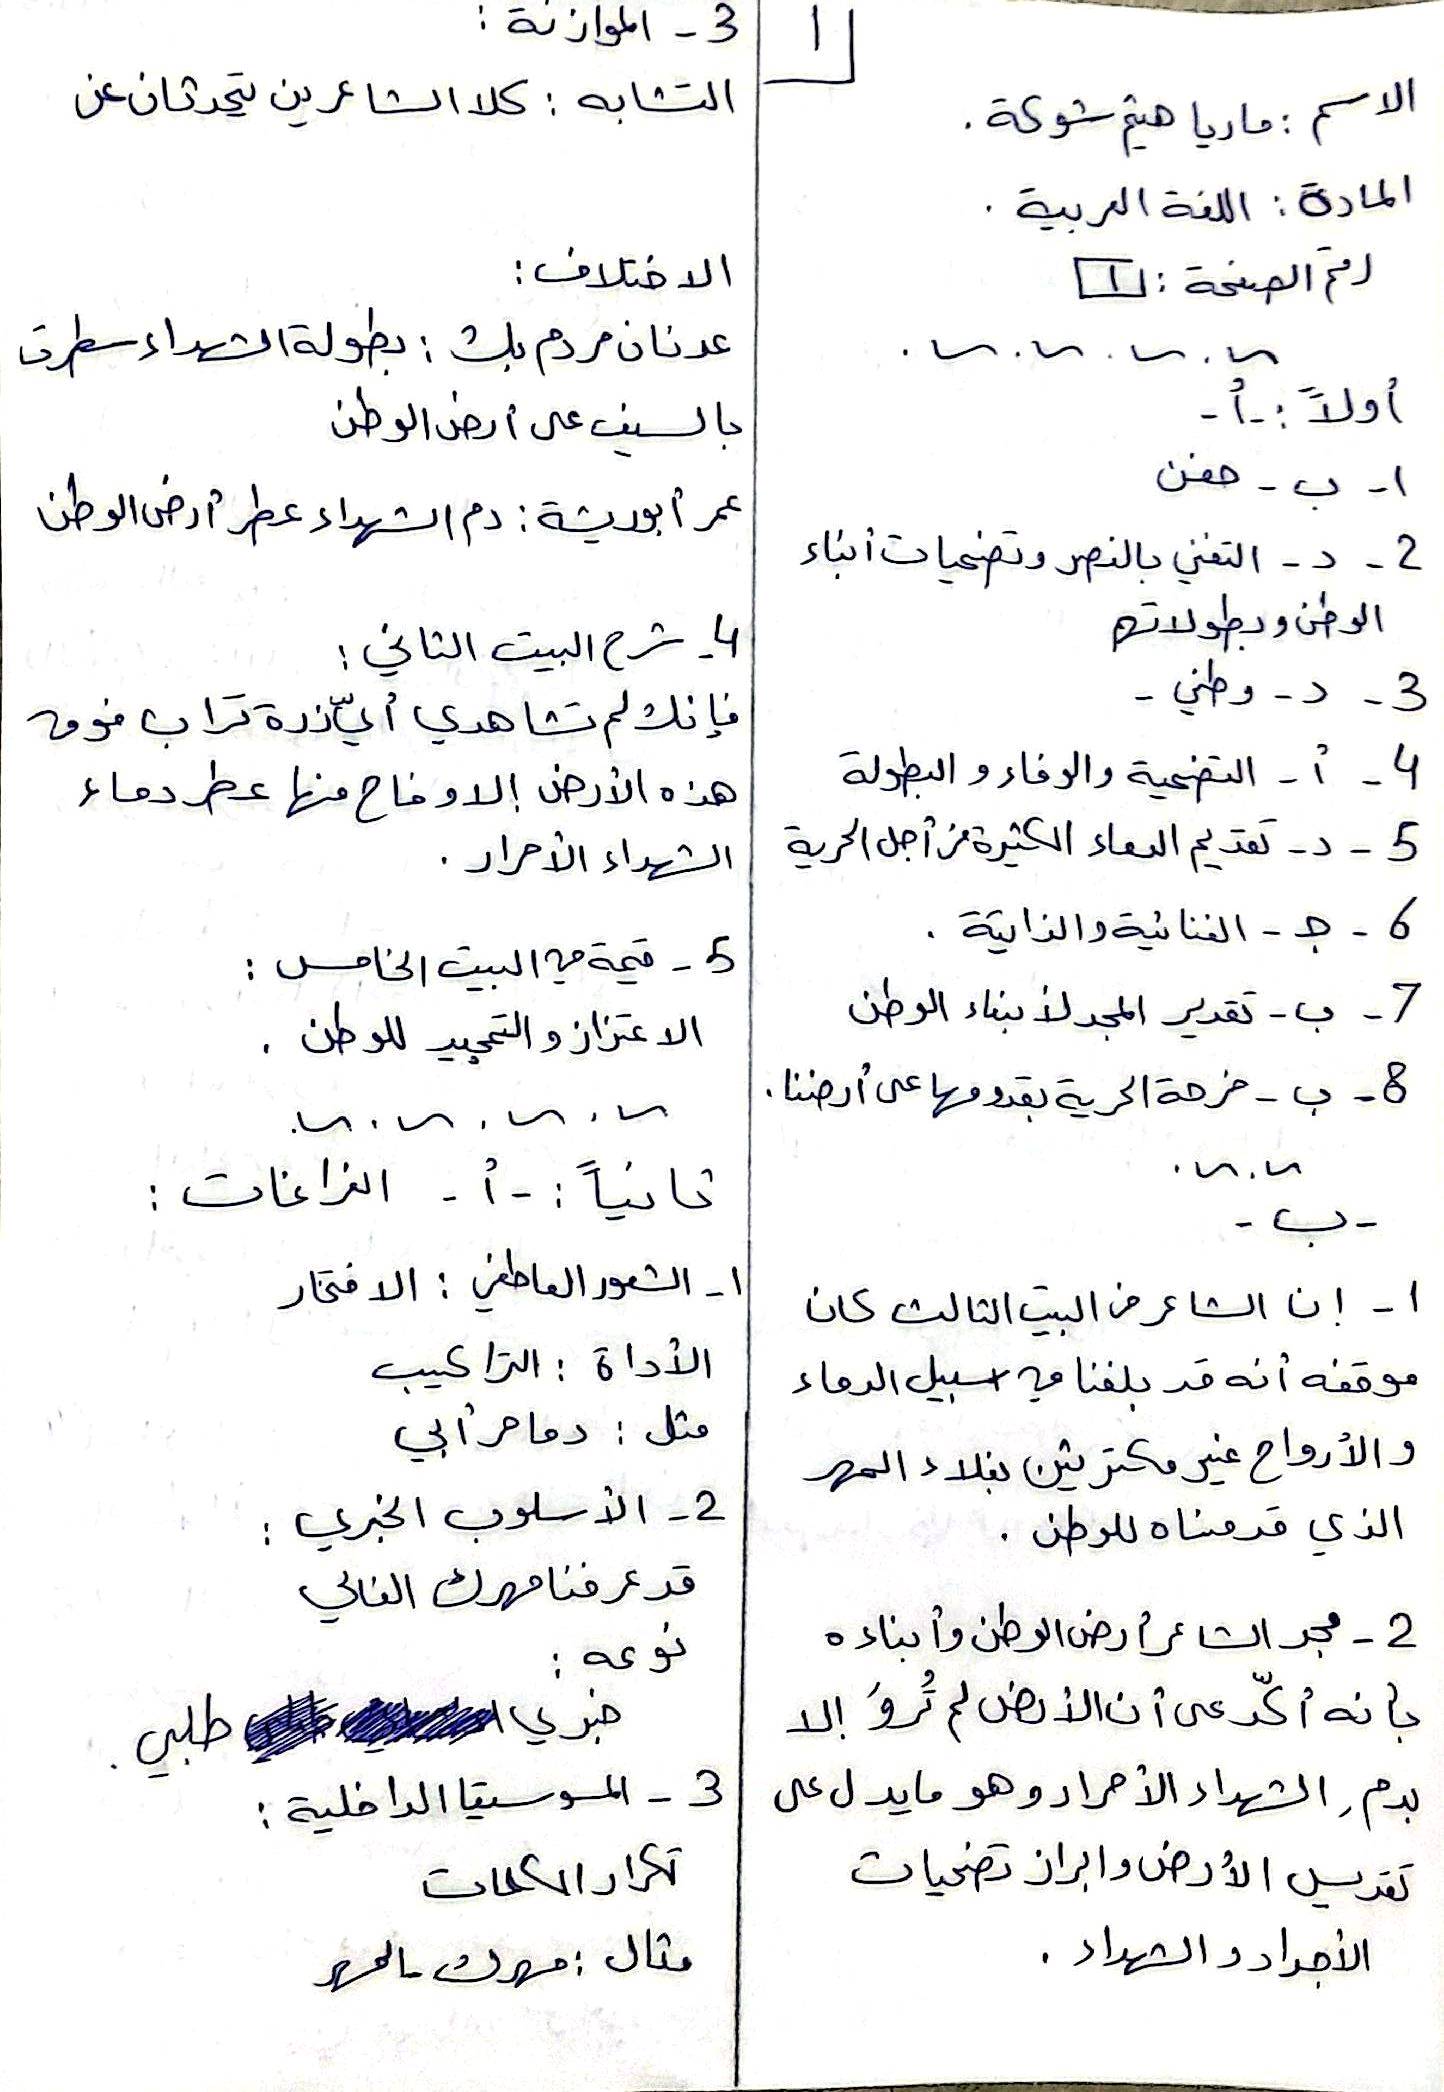 1
الاسم : ماريا هيثم شوكة .
المادة : اللغة العربية .
رقم الصفحة : 1
أولاً : -أ-
1- ب - حفن
2- د - التغني بالنصر وتضحيات أبناء
الوطن وبطولاتهم
3- د - وطني -
4- أ - التضحية والوفاء والبطولة
5- د - تقديم الدماء الكثيرة من أجل الحرية
6- جـ - الغنائية والذاتية .
7- ب - تقدير المجد لأبناء الوطن
8- ب - فرحة الحرية بقدومها على أرضنا .
- ب -
1- إن الشاعر في البيت الثالث كان
موقفه أنه قد بلغنا في سبيل الدماء
والأرواح غير مكترثين بغلاء المهر
الذي قدمناه للوطن .
2- مجد الشاعر أرض الوطن وأبناءه
بأنه أكّد على أن الأرض لم تُروَ إلا
بدمِ الشهداء الأحرار وهو ما يدل على
تقديس الأرض وابراز تضحيات
الأجداد والشهداء .
3- الموازنة :
التشابه : كلا الشاعرين يتحدثان عن
الاختلاف :
عدنان مردم بك : بطولة الشهداء سطرت
بالسيف على أرض الوطن
عمر أبو ريشة : دم الشهداء عطر أرض الوطن
4- شرح البيت الثاني :
فإنك لم تشاهدي أيّ ذرة تراب فوق
هذه الأرض إلا وفاح منها عطر دماء
الشهداء الأحرار .
5- قيمة في البيت الخامس :
الاعتزاز والتمجيد للوطن .
ثانياً : -أ- الفراغات :
1- الشعور العاطفي : الافتخار
الأداة : التراكيب
مثل : دما حر أبي
2- الأسلوب الخبري :
قد عرفنا مهرك الغالي
نوعه :
خبري طلبي .
3- الموسيقا الداخلية :
تكرار الكلمات
مثال : مهرك - المهر